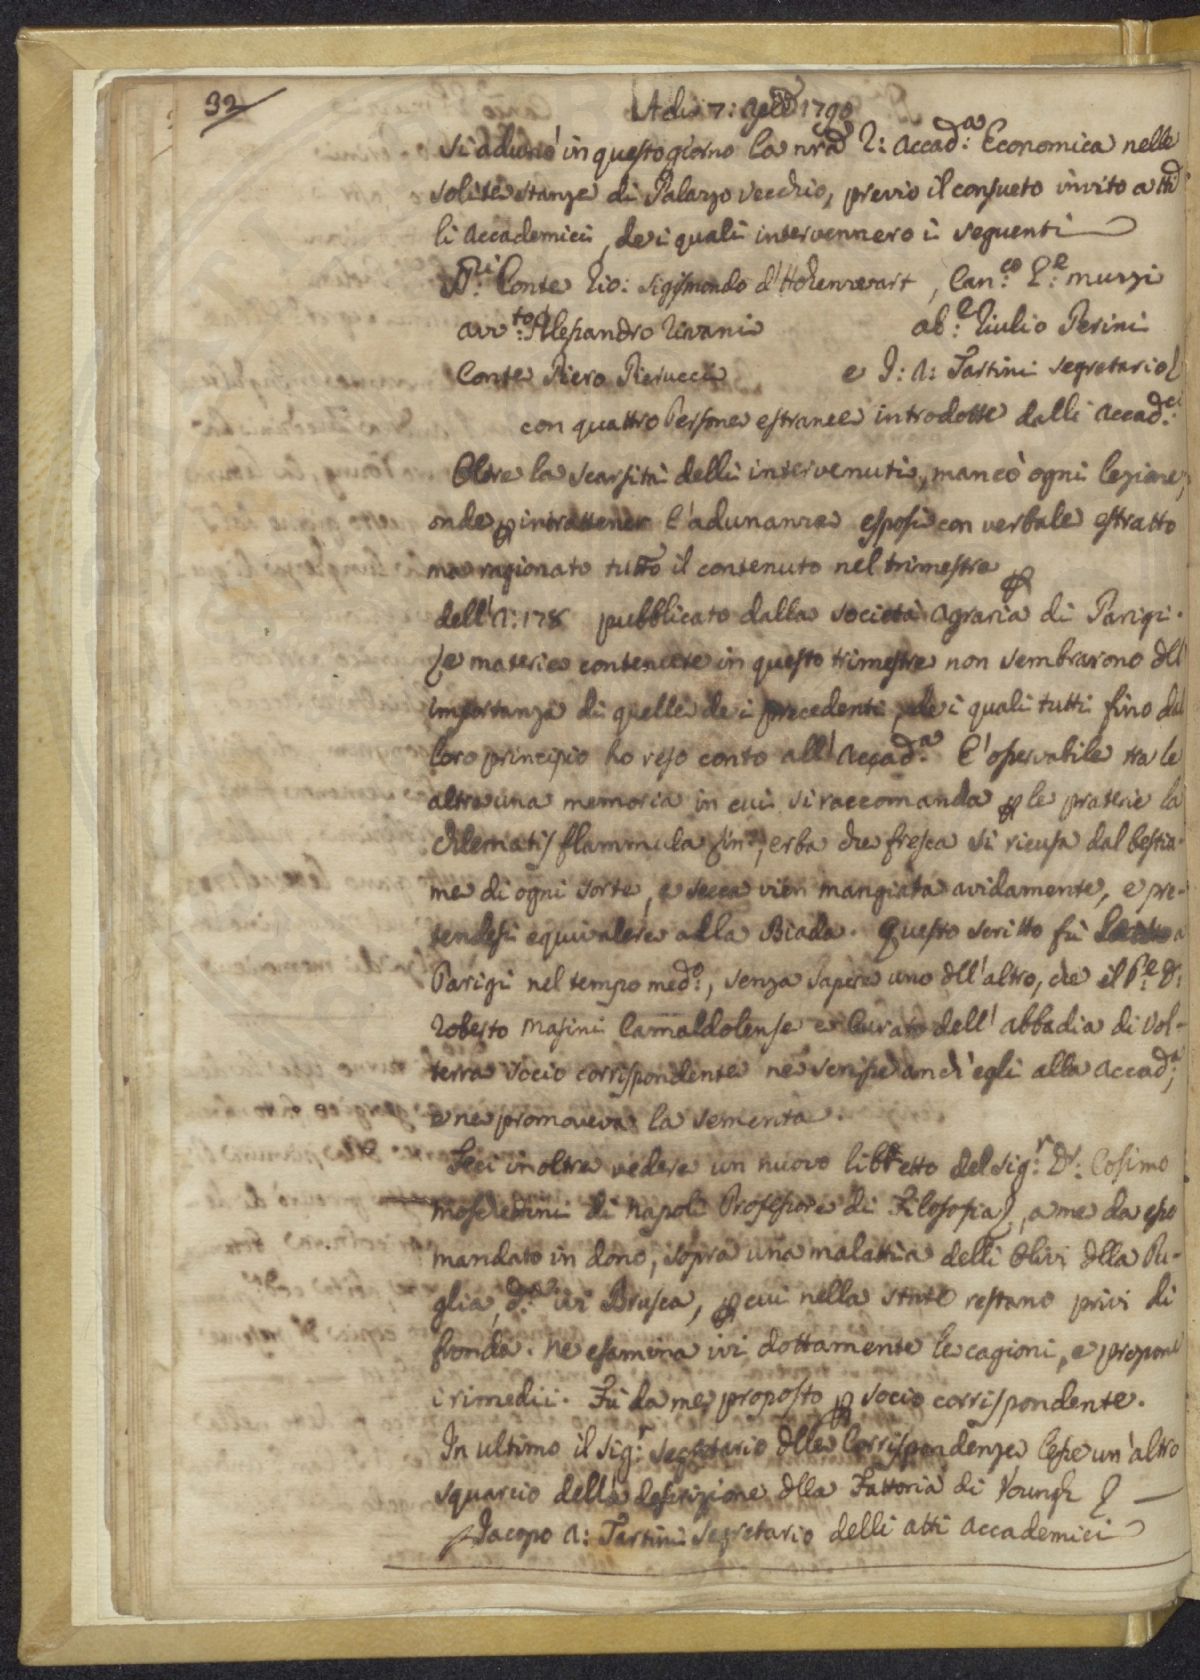 32
Adì 7: Aple 1790
Si adunò in questo giorno la nrã R: Accad:a Economica nelle
solite stanze di Palazzo Vecchio, previo il consueto invito a tti
li Accademici, de i quali intervennero i seguenti
Conte Gio: Sigismondo d'Hohenwart, Can:co L:e Muzzi
Avv:to Alessandro Rivani ab:e Giulio Perini
Conte Piero Pierucci e J: A: Tartini Segretario
con quattro Persone estranee introdotte dalli Accad:ci
Oltre la scarsità delli intervenuti, mancò ogni lezione,
onde p intrattener l'adunanza esposi con verbale estratto
ma ragionato tutto il contenuto nel trimestre
dell'A: 178 pubblicato dalla Società Agraria di Parigi.
Le materie contenute in questo trimestre non sembrarono dll
importanza di quelle de i precedenti, de i quali tutti fino dal
loro principio ho reso conto all'Accad:a E' osservabile tra le
altre una memoria in cui si raccomanda p le praterie la
Clematis flammula Lin:, erba che fresca si ricusa dal bestia-
me di ogni sorte, e secca vien mangiata avidamente, e pre-
tendesi equivalere alla Biada. Questo scritto fù a
Parigi nel tempo med:o, senza sapere uno dll'altro, che il P:e D:
Roberto Masini Camaldolense e Curato dell'Abbadia di Vol-
terra socio corrispondente ne scrisse anch'egli alla Accad:a,
e ne promoveva la sementa.
Feci inoltre vedere un nuovo libretto del Sig:r Dr: Cosimo
Moschettini di Napoli Professore di Filosofia, a me da esso
mandato in dono, sopra una malattia delli Olivi dlla Pu-
glia, d:a ivi Brusca, p cui nella state restano privi di
fronda. Ne esamina ivi dottamente le cagioni, e propone
i rimedii. Fù da me proposto p socio corrispondente.
In ultimo il Sig:r Segretario dlle Corrispondenze lesse un'altro
squarcio della descrizione dlla Fattoria di Youngh
Jacopo A: Tartini Segretario delli Atti Accademici